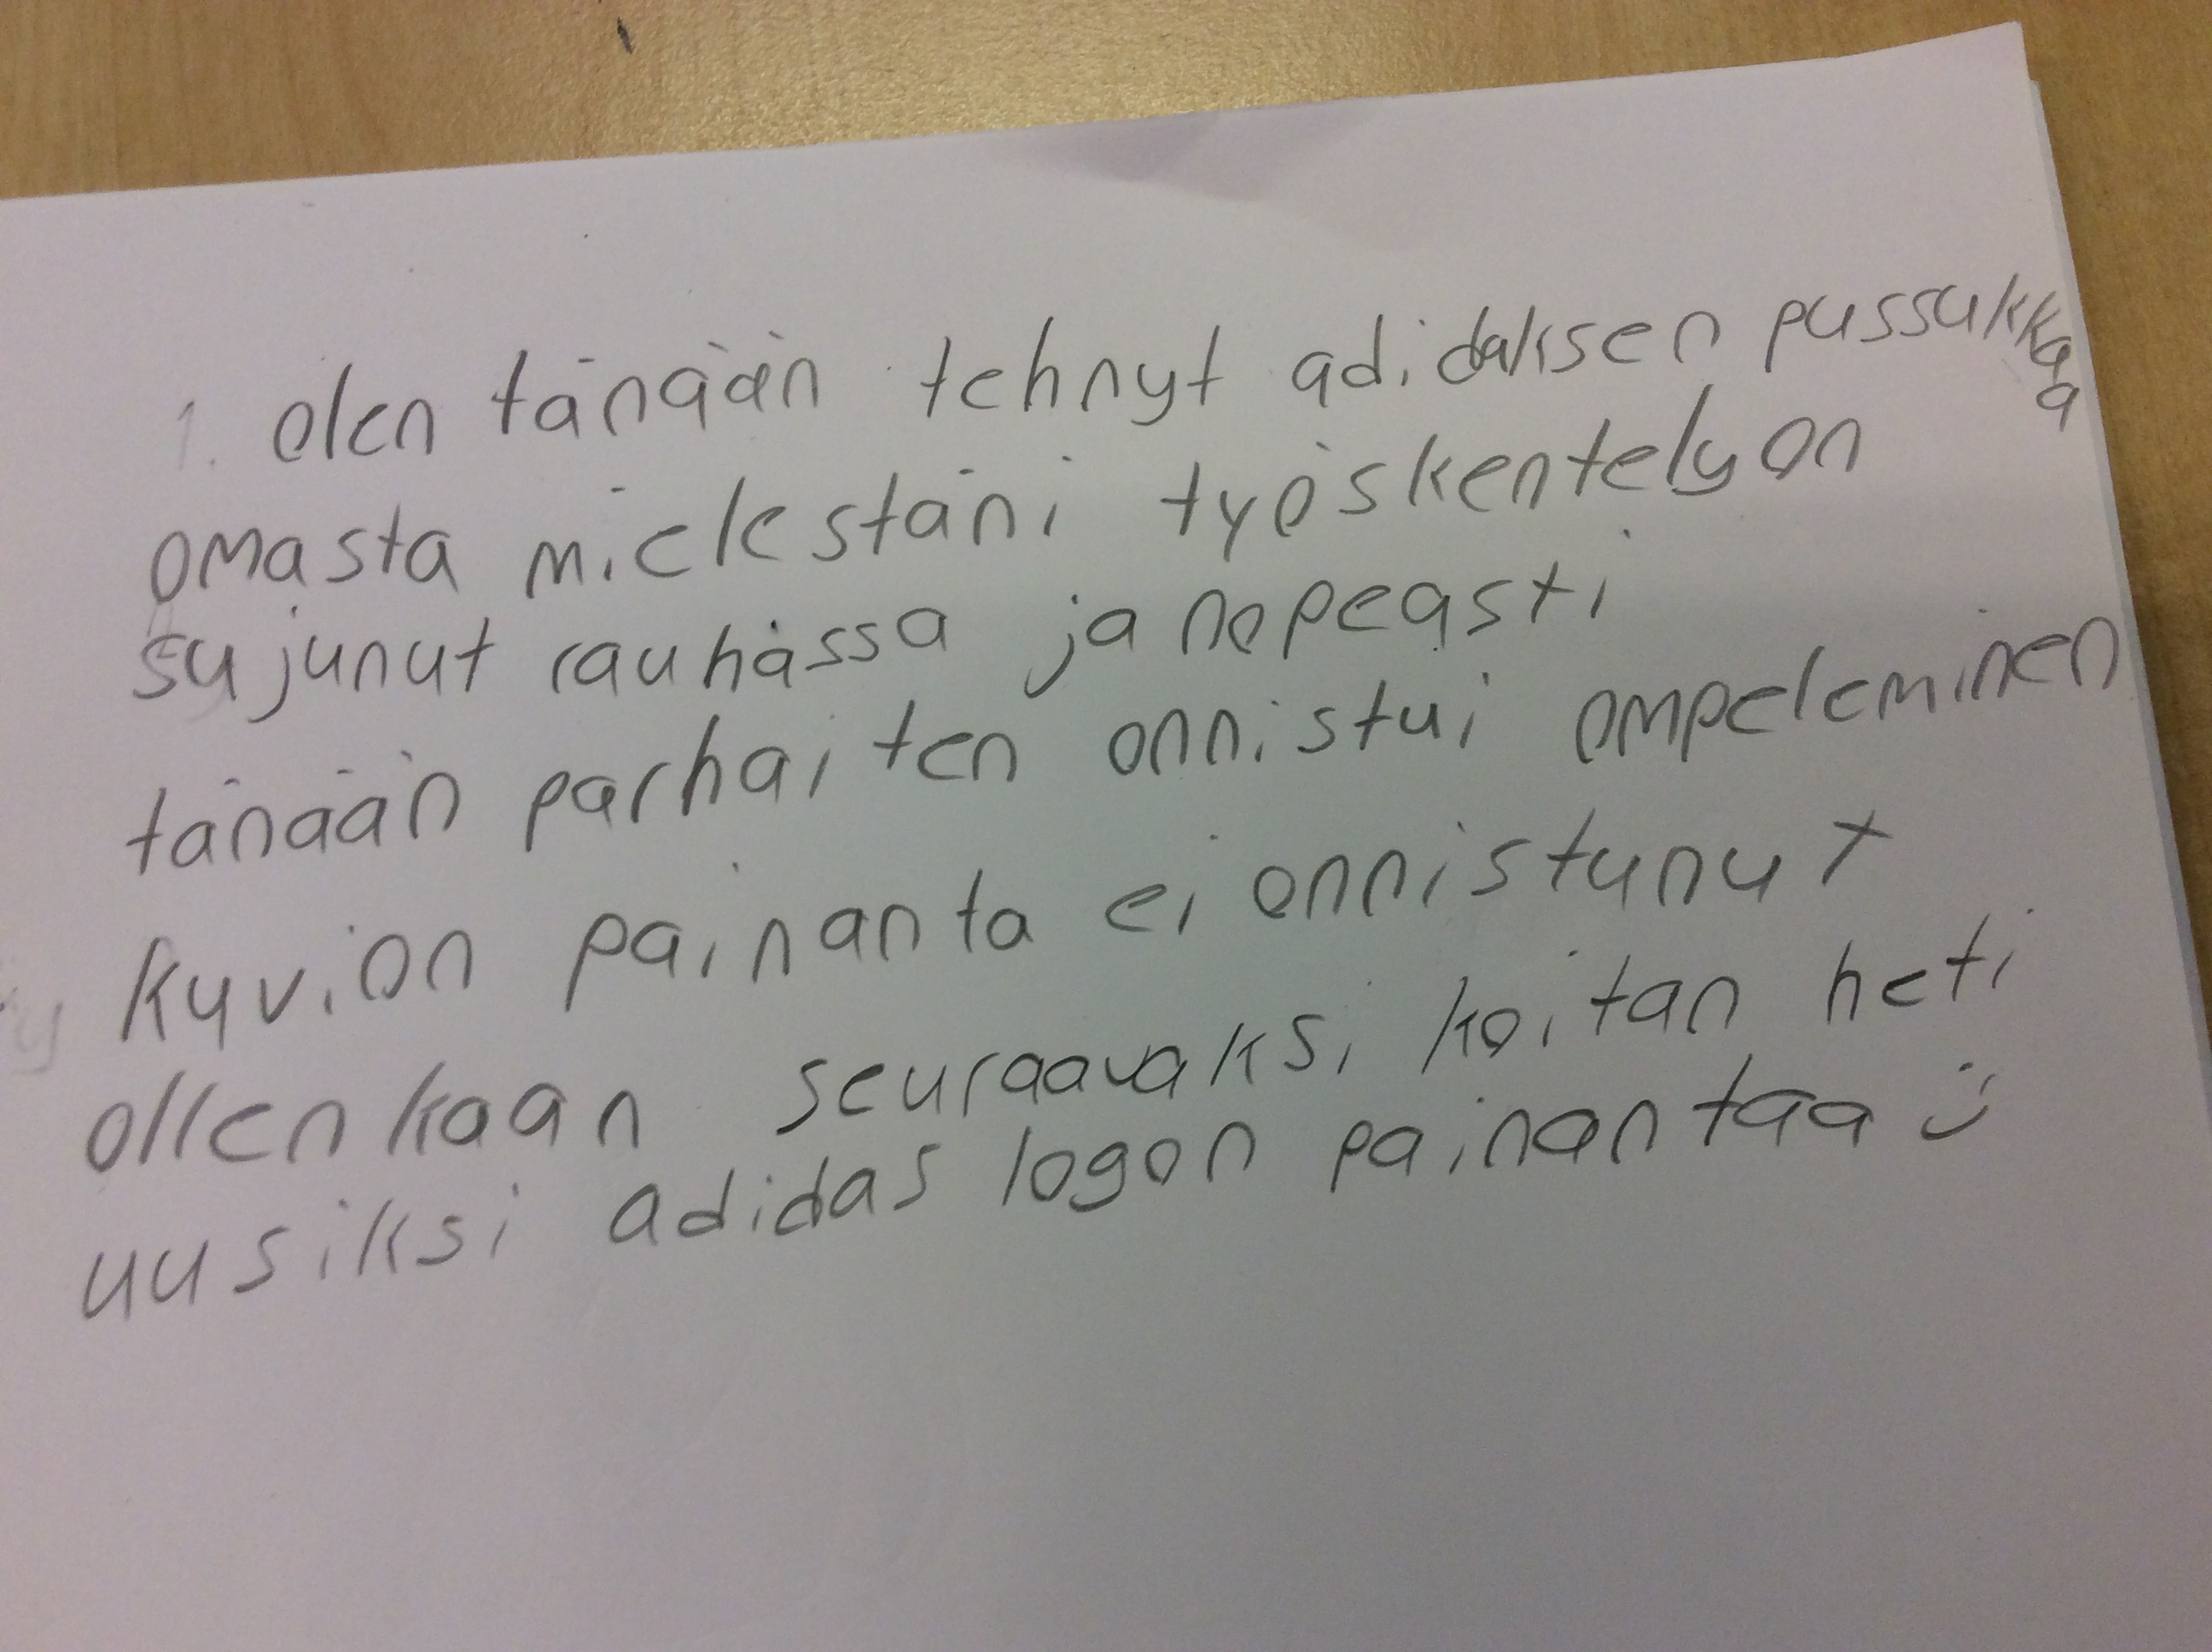 1. olen tänään tehnyt adidaksen pussukkaa
omasta mielestäni työskentely on
sujunut rauhassa ja nopeasti
tänään parhaiten onnistui ompeleminen
kuvion painanta ei onnistunut
ollenkaan seuraavaksi koitan heti
uusiksi adidas logon painantaa :)